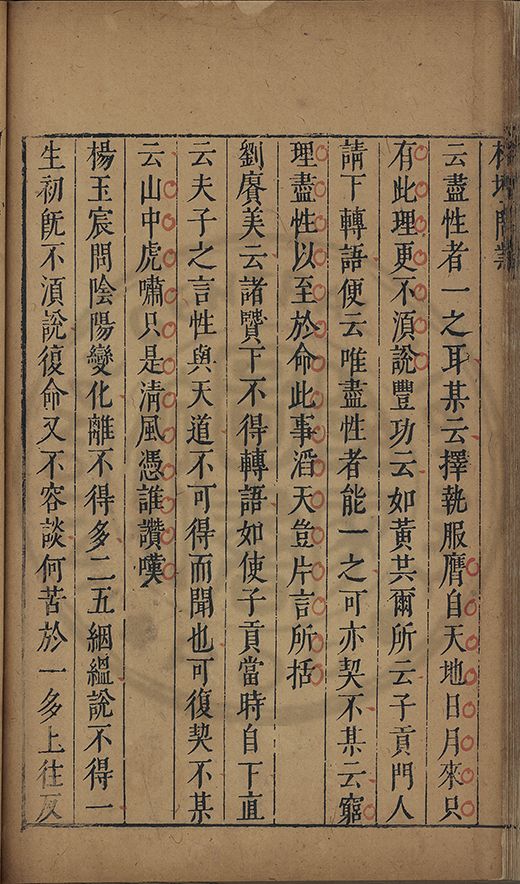 榕壇問業
云盡性者一之耳某云擇執服膺自天地日月來只
有此理更不湏說豐功云如黃共爾所云子貢門人
請下轉語便云唯盡性者能一之可亦契不某云窮
理盡性以至於命此事滔天豈片言所括
劉賡美云諸贒下不得轉語如使子貢當時自下直
云夫子之言性與天道不可得而聞也可復契不某
云山中虎嘯只是清風憑誰讚嘆
楊玉宸問陰陽變化離不得多二五絪縕說不得一
生初旣不湏說復命又不容談何苦於一多上往反